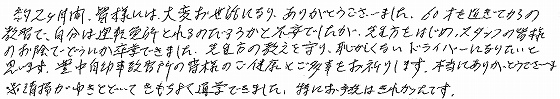 約2ヶ月間、皆様には、大変お世話になり、ありがとうございました。60才を過ぎてからの
教習で、自分は運転免許とれるのだろうかと不安でしたが、先生方をはじめ、スタッフの皆様
のお陰でどうにか卒業できました。先生方の教えを守り、恥かしくないドライバーになりたいと
思います。豊中自動車教習所の皆様のご健康とご多幸をお祈りします。本当にありがとうございます
皆様が ゆきとどいて きもちよく通学できました。特にお手洗はきれかったです。